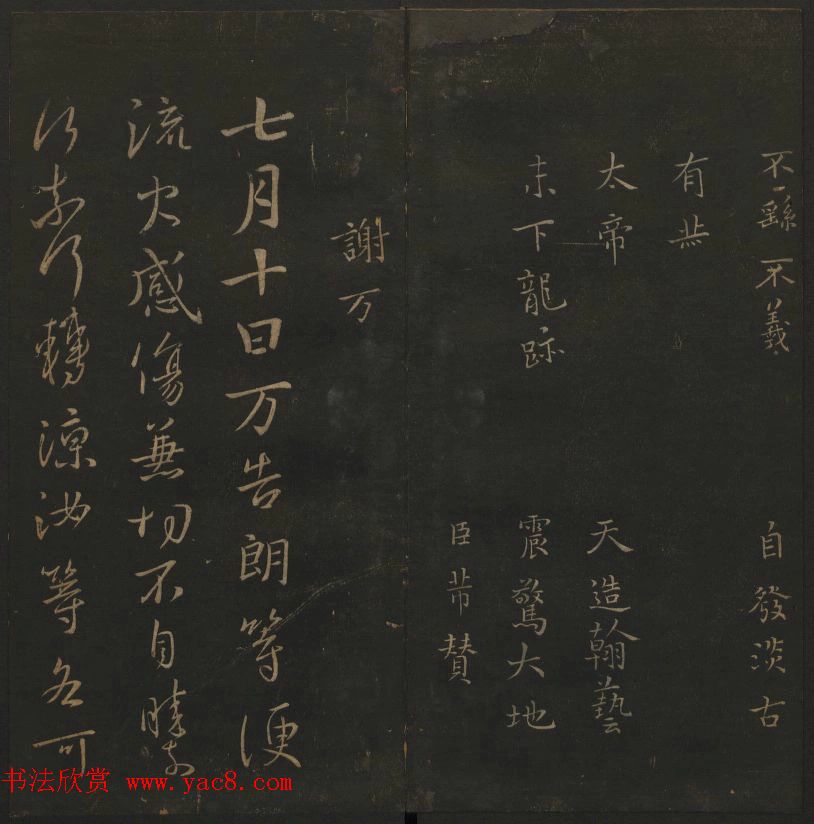 不繇不羲 自發淡古
有
太帝 天造翰藝
末下龍跡 震驚大地
臣芾贊
謝万
七月十日万告朗等便
流火感傷兼切不自勝奈
何奈何轉涼汝等各可
书法欣赏 www.yac8.com